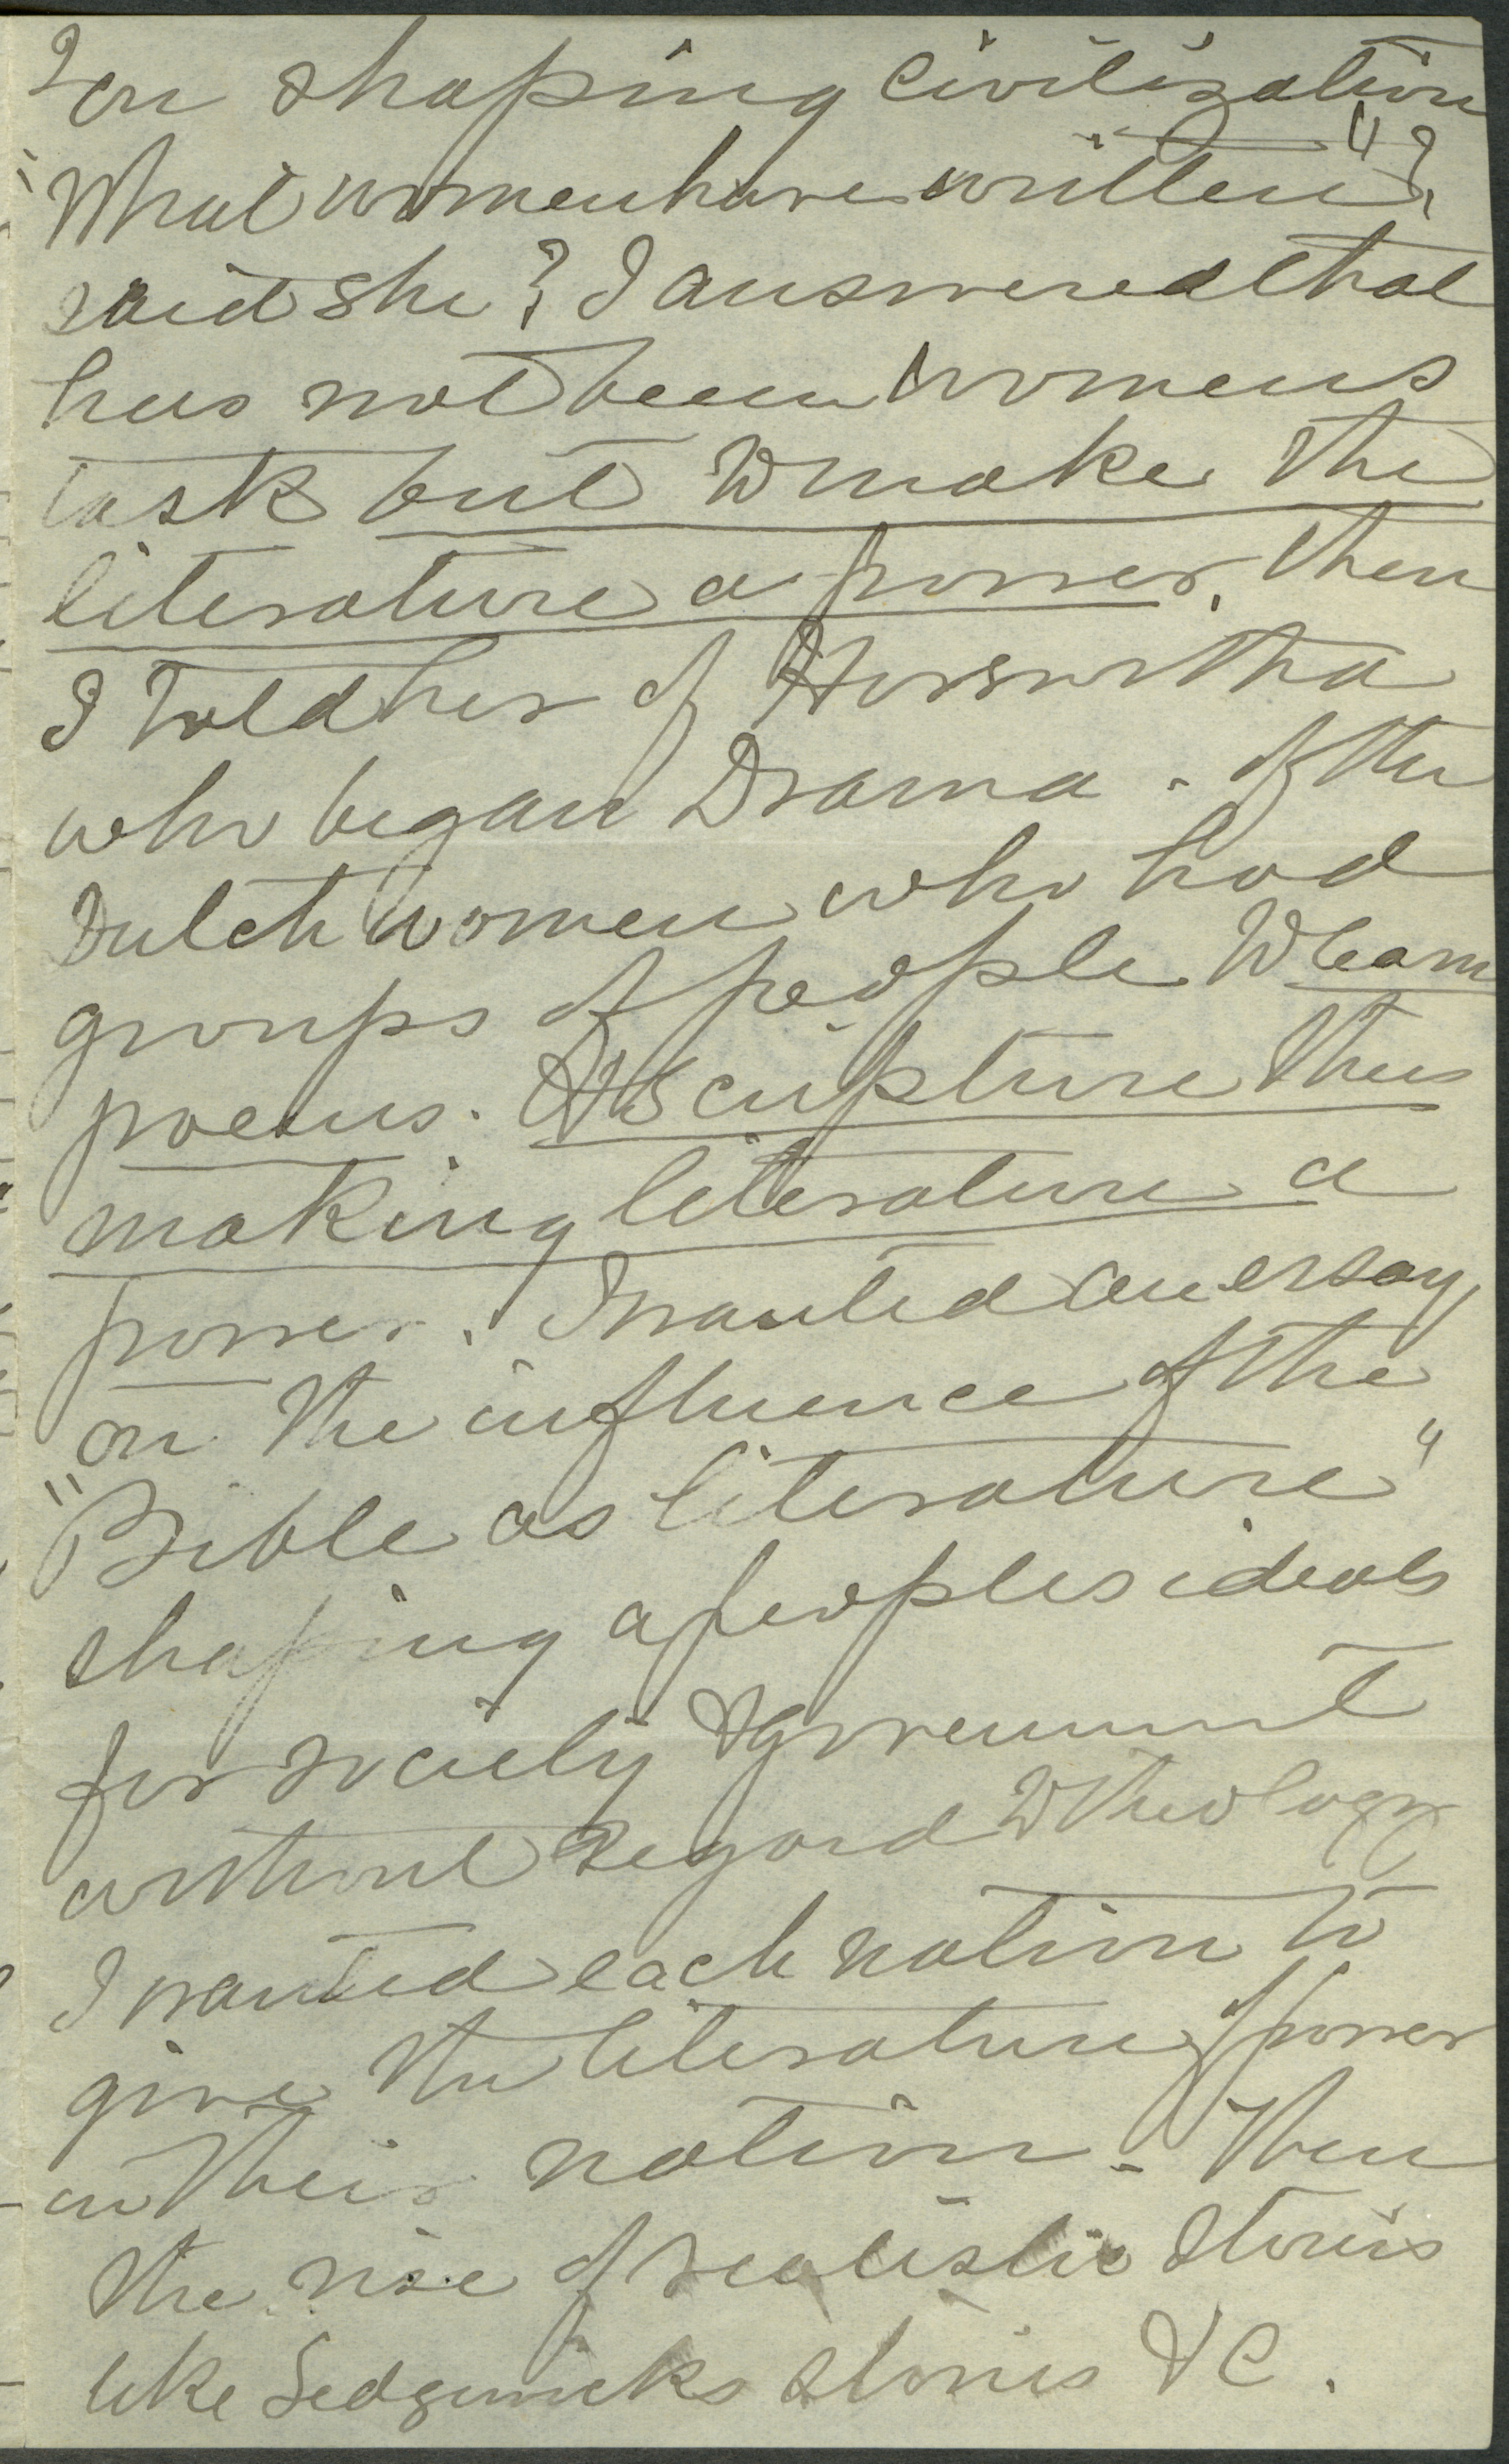 on shaping civilization
"What women have written"?
said she? I answered that
has not been womens
task but to make the
literature a power. Then
I told her of Hroswitha
who began Drama. of the
Dutch women who had
groups of people to learn
poems. & Sculpture thus
making literature a
power. I wanted an essay
on the influence of the
"Bible as literature"
shaping a peoples ideals
for society & government
without regard to theology
I wanted each nation to
give the literature of power
in their nation - Then
the rise of realistic stories
like Sedgwicks stories &C.